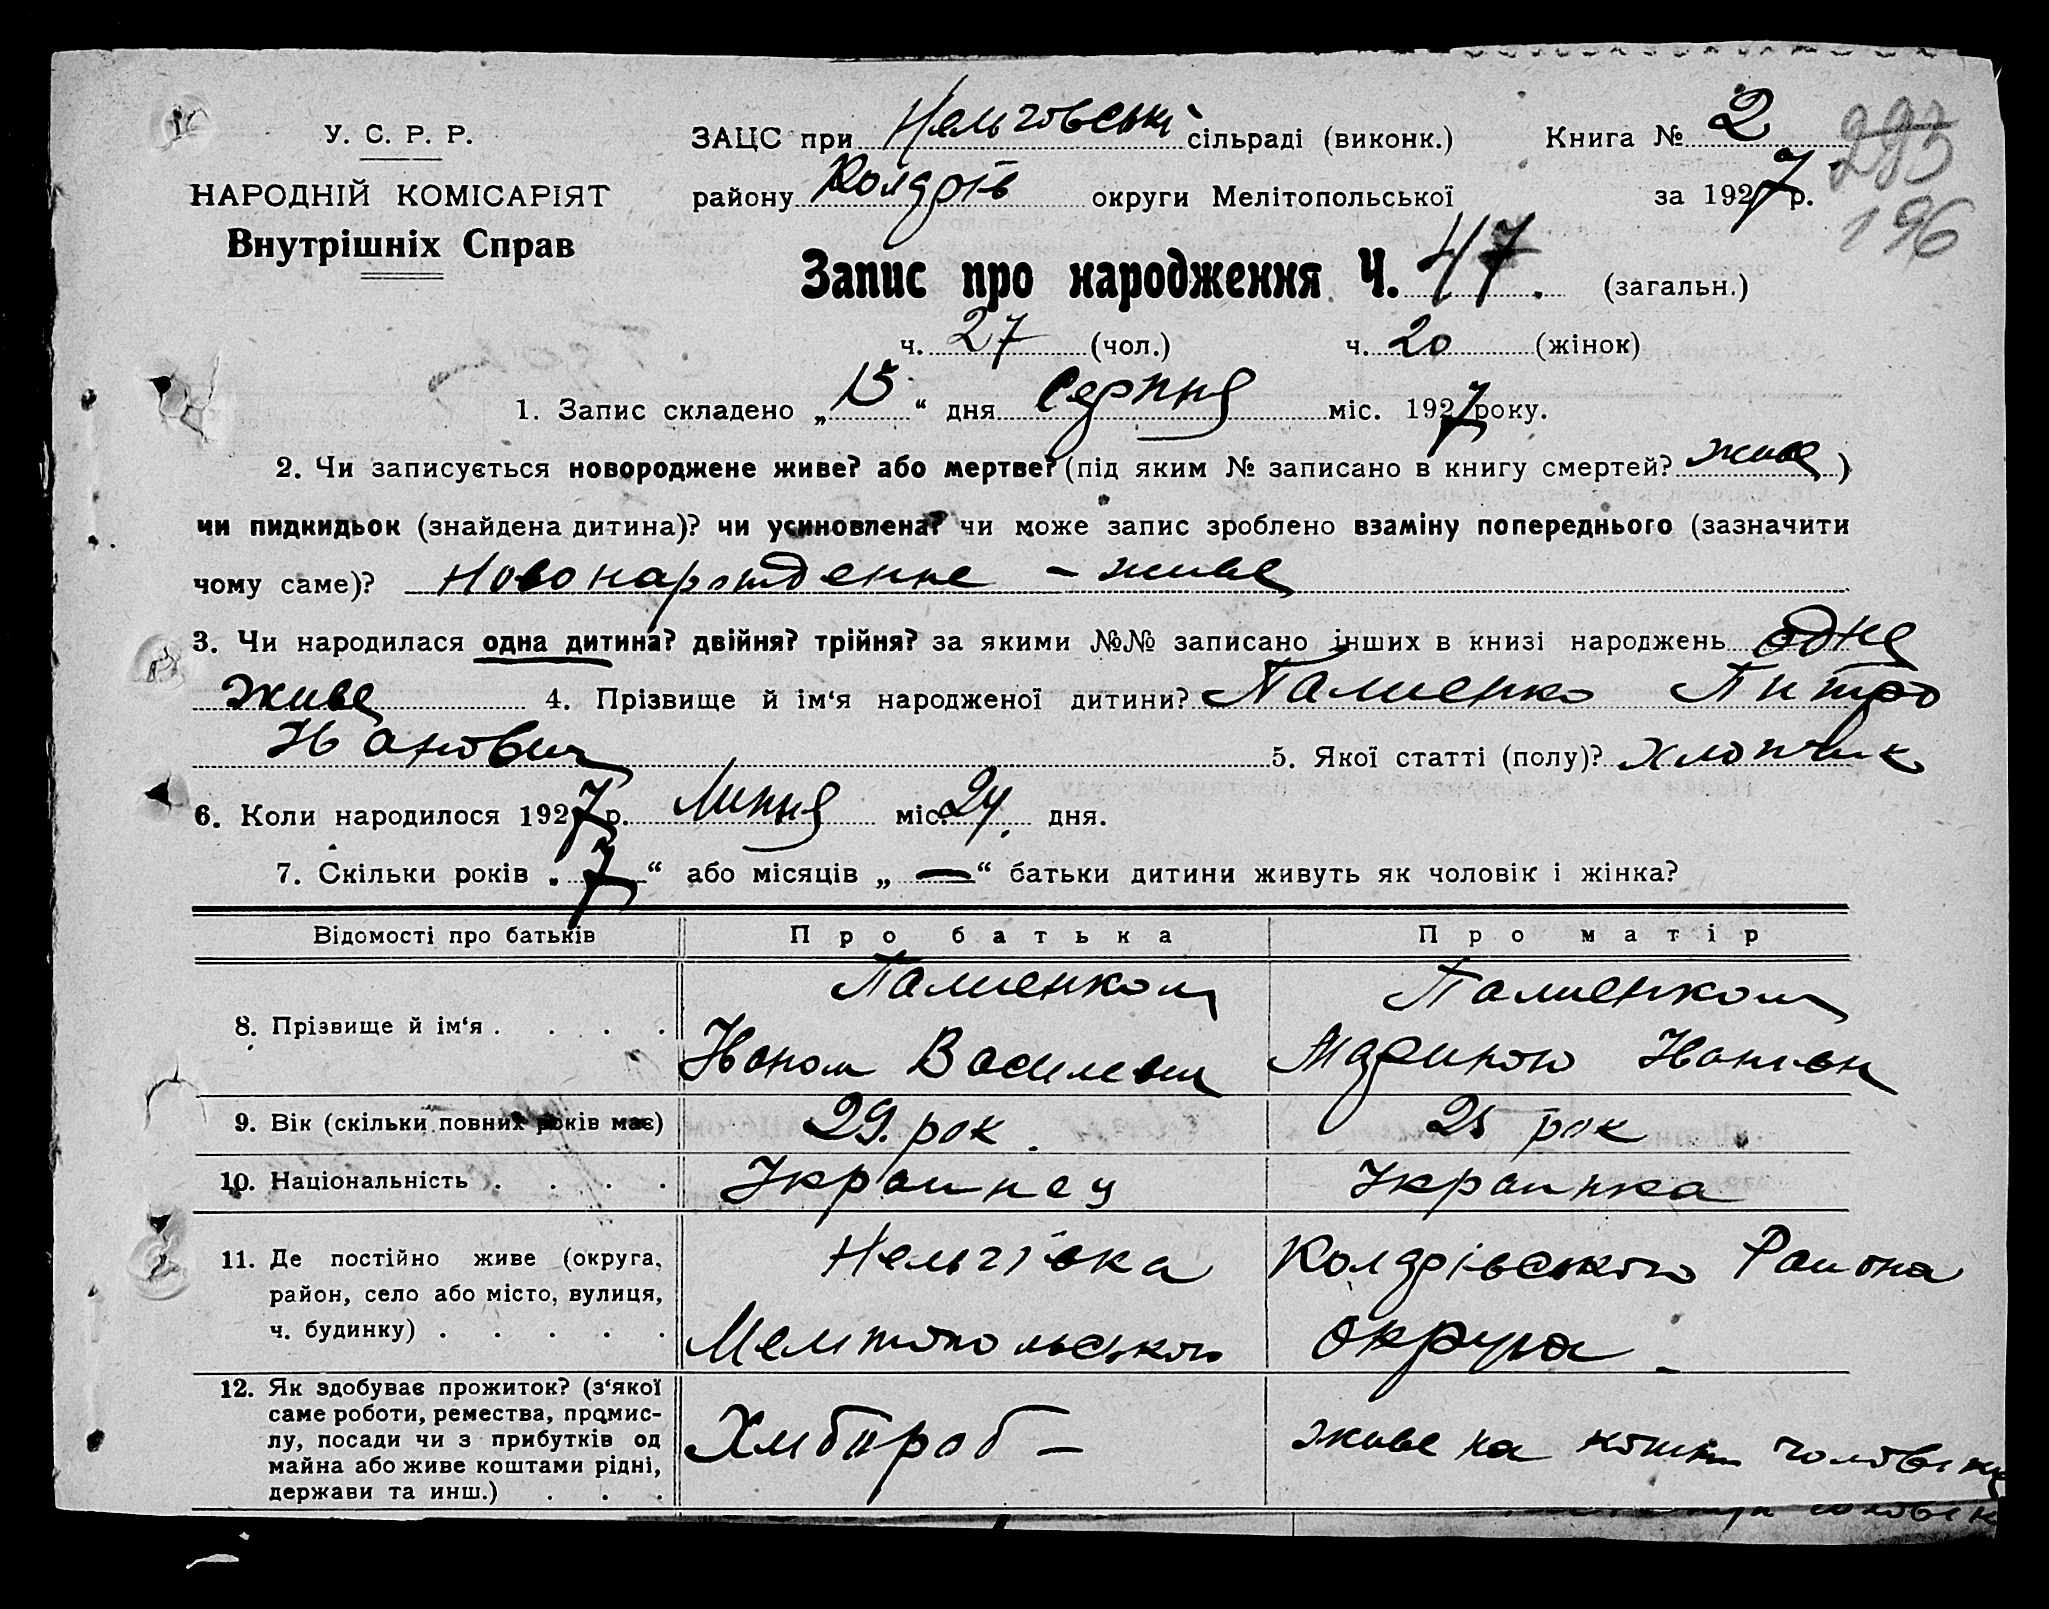 У. С. Р. Р.
НАРОДНІЙ КОМІСАРІЯТ
Внутрішніх Справ
ЗАЦС при Нельговські сільраді (виконк.) Книга № 2
293
району округи Мелітопольської за 1927 р.
196
Запис про народження Ч. 47. (загальн.)
ч. 27 (чол.) ч. 20 (жінок)
1. Запис складено „ 15 “ дня Серпня міс. 1927 року.
2. Чи записується новороджене живе? або мертве? (під яким № записано в книгу смертей? живе )
чи пидкидьок (знайдена дитина)? чи усиновлена? чи може запис зроблено взаміну попереднього (зазначити
чому саме)? Новонарожденне - живе
3. Чи народилася одна дитина? двійня? трійня? за якими №№ записано інших в книзі народжень одне
живе 4. Прізвище й ім‘я народженої дитини? Палиенко Питро
Иванович 5. Якої статті (полу)? хлопчик
6. Коли народилося 1927 р. Липня міс. 24. дня.
7. Скільки років „ 7 “ або місяців „ — “ батьки дитини живуть як чоловік і жінка?
Відомості про батьків Про батька Про матір
8. Прізвище й ім‘я . . . . Палиенком Палиенком
Иваном Василевич Мариною Иванівн
9. Вік (скільки повних років має) 29. рок. 25 рок
10. Національність . . . . Украинец Украинка
11. Де постійно живе (округа, Нельгівка Колдрівського Раиона
район, село або місто, вулиця,
ч. будинку) . . . . . Мелитопольського округа -
12. Як здобуває прожиток? (з‘якої
саме роботи, ремества, промис-
лу, посади чи з прибутків од Хлибороб - живе на кошти чоловіка
майна або живе коштами рідні,
держави та инш.) . . .